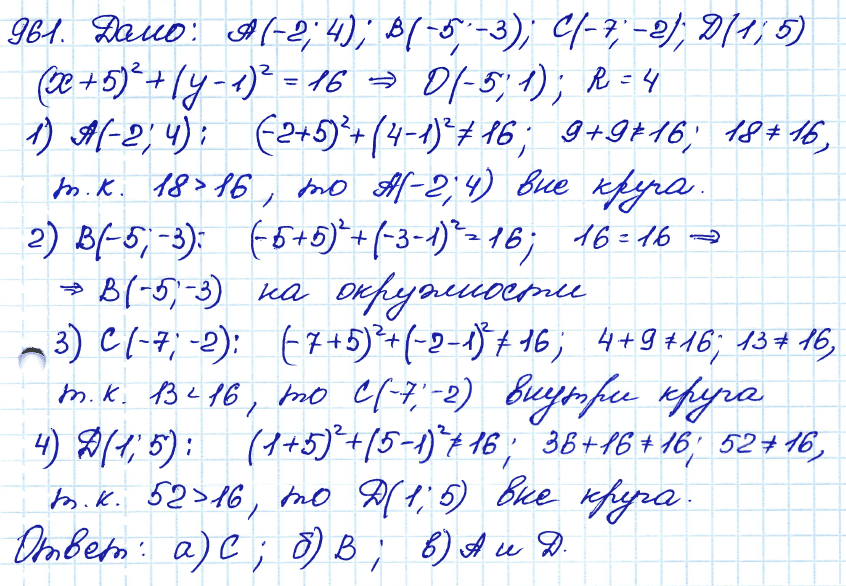 961. Дано: A(-2; 4); B(-5; -3); C(-7; -2); D(1; 5)
(x+5)² + (y-1)² = 16 ⇒ O(-5; 1); R = 4
1) A(-2; 4): (-2+5)² + (4-1)² ≠ 16; 9+9≠16; 18 ≠ 16,
т.к. 18 > 16, то A(-2; 4) вне круга.
2) B(-5; -3): (-5+5)² + (-3-1)² = 16; 16 = 16 ⇒
⇒ B(-5; -3) на окружности
3) C(-7; -2): (-7+5)² + (-2-1)² ≠ 16; 4+9 ≠ 16; 13 ≠ 16,
т.к. 13 < 16, то C(-7; -2) внутри круга
4) D(1; 5): (1+5)² + (5-1)² ≠ 16; 36+16 ≠ 16; 52 ≠ 16,
т.к. 52 > 16, то D(1; 5) вне круга.
Ответ: а) C; б) B; в) A и D.